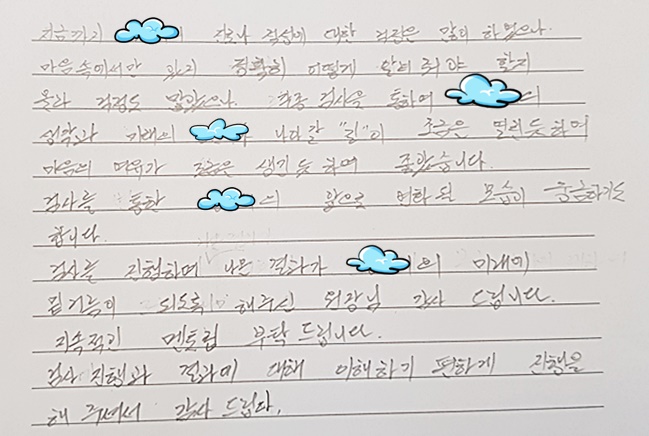 지금까지 진로나 적성에 대한 걱정은 많이 하였으나
마음속에서만 정확히 어떻게 알려줘야 할지
몰라 걱정도 많았으나. 각종 검사를 통하여 의
성격과 미래의 나다갈 "길"이 조금은 열린듯하여
마음의 여유가 조금은 생긴 듯 하여 좋았습니다.
검사를 통한 의 앞으로 변화 된 모습이 궁금하기도
합니다.
검사를 진행하며 나온 결과가 의 미래에
밑거름이 되도록 해주신 원장님 감사 드립니다.
지속적인 멘토링 부탁 드립니다.
검사 진행과 결과에 대해 이해하기 편하게 진행을
해 주셔서 감사 드립니다.